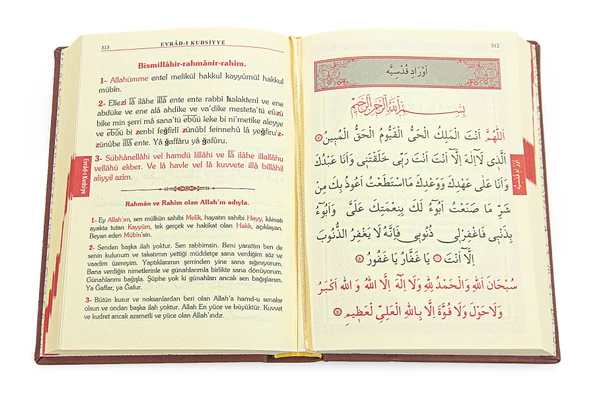 313
EVRÂD-I KUDSİYYE
Bismillâhir-rahmânir-rahim.
1- Allahümme entel melikül hakkul kayyûmül hakkul
mübîn.
2- Ellezî lâ ilâhe illâ ente ente rabbî halaktenî ve ene
abdüke ve ene alâ ahdike ve va'dike mesteta'tü eûzü
bike min şerri mâ sana'tü ebûü leke bi ni'metike aleyye
ve ebûü bi zenbî feğfirlî zünûbî feinnehû lâ yeğfiru'z-
zünûbe illâ ente. Yâ ğaffâru yâ ğafûru.
3- Sübhânellâhi vel hamdü lillâhi ve lâ ilâhe illallâhu
vellâhü ekber. Ve lâ havle ve lâ kuvvete illâ billâhil
aliyyil azîm.
Rahmân ve Rahîm olan Allah'ın adıyla.
1- Ey Allah'ım, sen mülkün sahibi Melik, hayatın sahibi Hayy, kâinatı
ayakta tutan Kayyûm, tek gerçek ve hakikat olan Hakk, açıklayan,
Beyan eden Mübîn'sin.
2- Senden başka ilah yoktur. Sen rabbimsin. Beni yarattın ben de
senin kulunum ve takatımın yettiği müddetçe sana verdiğim söz ve
vaadim üzereyim. Yaptıklarımın şerrinden yine sana sığınıyorum.
Bana verdiğin nimetlerinle ve günahlarımla birlikte sana dönüyorum.
Günahlarımı bağışla. Şüphe yok ki günahları ancak sen bağışlarsın,
Ya Gaffar, ya Gafur.
3- Bütün kusur ve noksanlardan beri olan Allah'a hamd-u senalar
olsun ve ondan başka ilah yoktur. Allah En yüce ve büyüktür. Kuvvet
ve kudret ancak azametli ve yüce olan Allah'ındır.
Evrâd-ı Kudsiye
312
اَوْرَادِ قُدْسِيَّه
بِسْمِ اللّٰهِ الرَّحْمٰنِ الرَّحِيمِ
اَللّٰهُمَّ اَنْتَ الْمَلِكُ الْحَىُّ الْقَيُّومُ الْحَقُّ الْمُبِينُ
اَلَّذِى لَٓا اِلٰهَ اِلَّٓا اَنْتَ اَنْتَ رَبِّى خَلَقْتَنِى وَاَنَا عَبْدُكَ
وَاَنَا عَلٰى عَهْدِكَ وَوَعْدِكَ مَا اسْتَطَعْتُ اَعُوذُ بِكَ مِنْ
شَرِّ مَا صَنَعْتُ اَبُوٓءُ لَكَ بِنِعْمَتِكَ عَلَىَّ وَاَبُوٓءُ
بِذَنْبِى فَاغْفِرْلِى ذُنُوبِى فَاِنَّهُ لَا يَغْفِرُ الذُّنُوبَ
اِلَّٓا اَنْتَ يَا غَفَّارُ يَا غَفُورُ
سُبْحَانَ اللّٰهِ وَالْحَمْدُ لِلّٰهِ وَلَٓا اِلٰهَ اِلَّا اللّٰهُ وَاللّٰهُ اَكْبَرُ
وَلَا حَوْلَ وَلَا قُوَّةَ اِلَّا بِاللّٰهِ الْعَلِىِّ الْعَظِيمِ
اَوْرَادِ قُدْسِيَّه